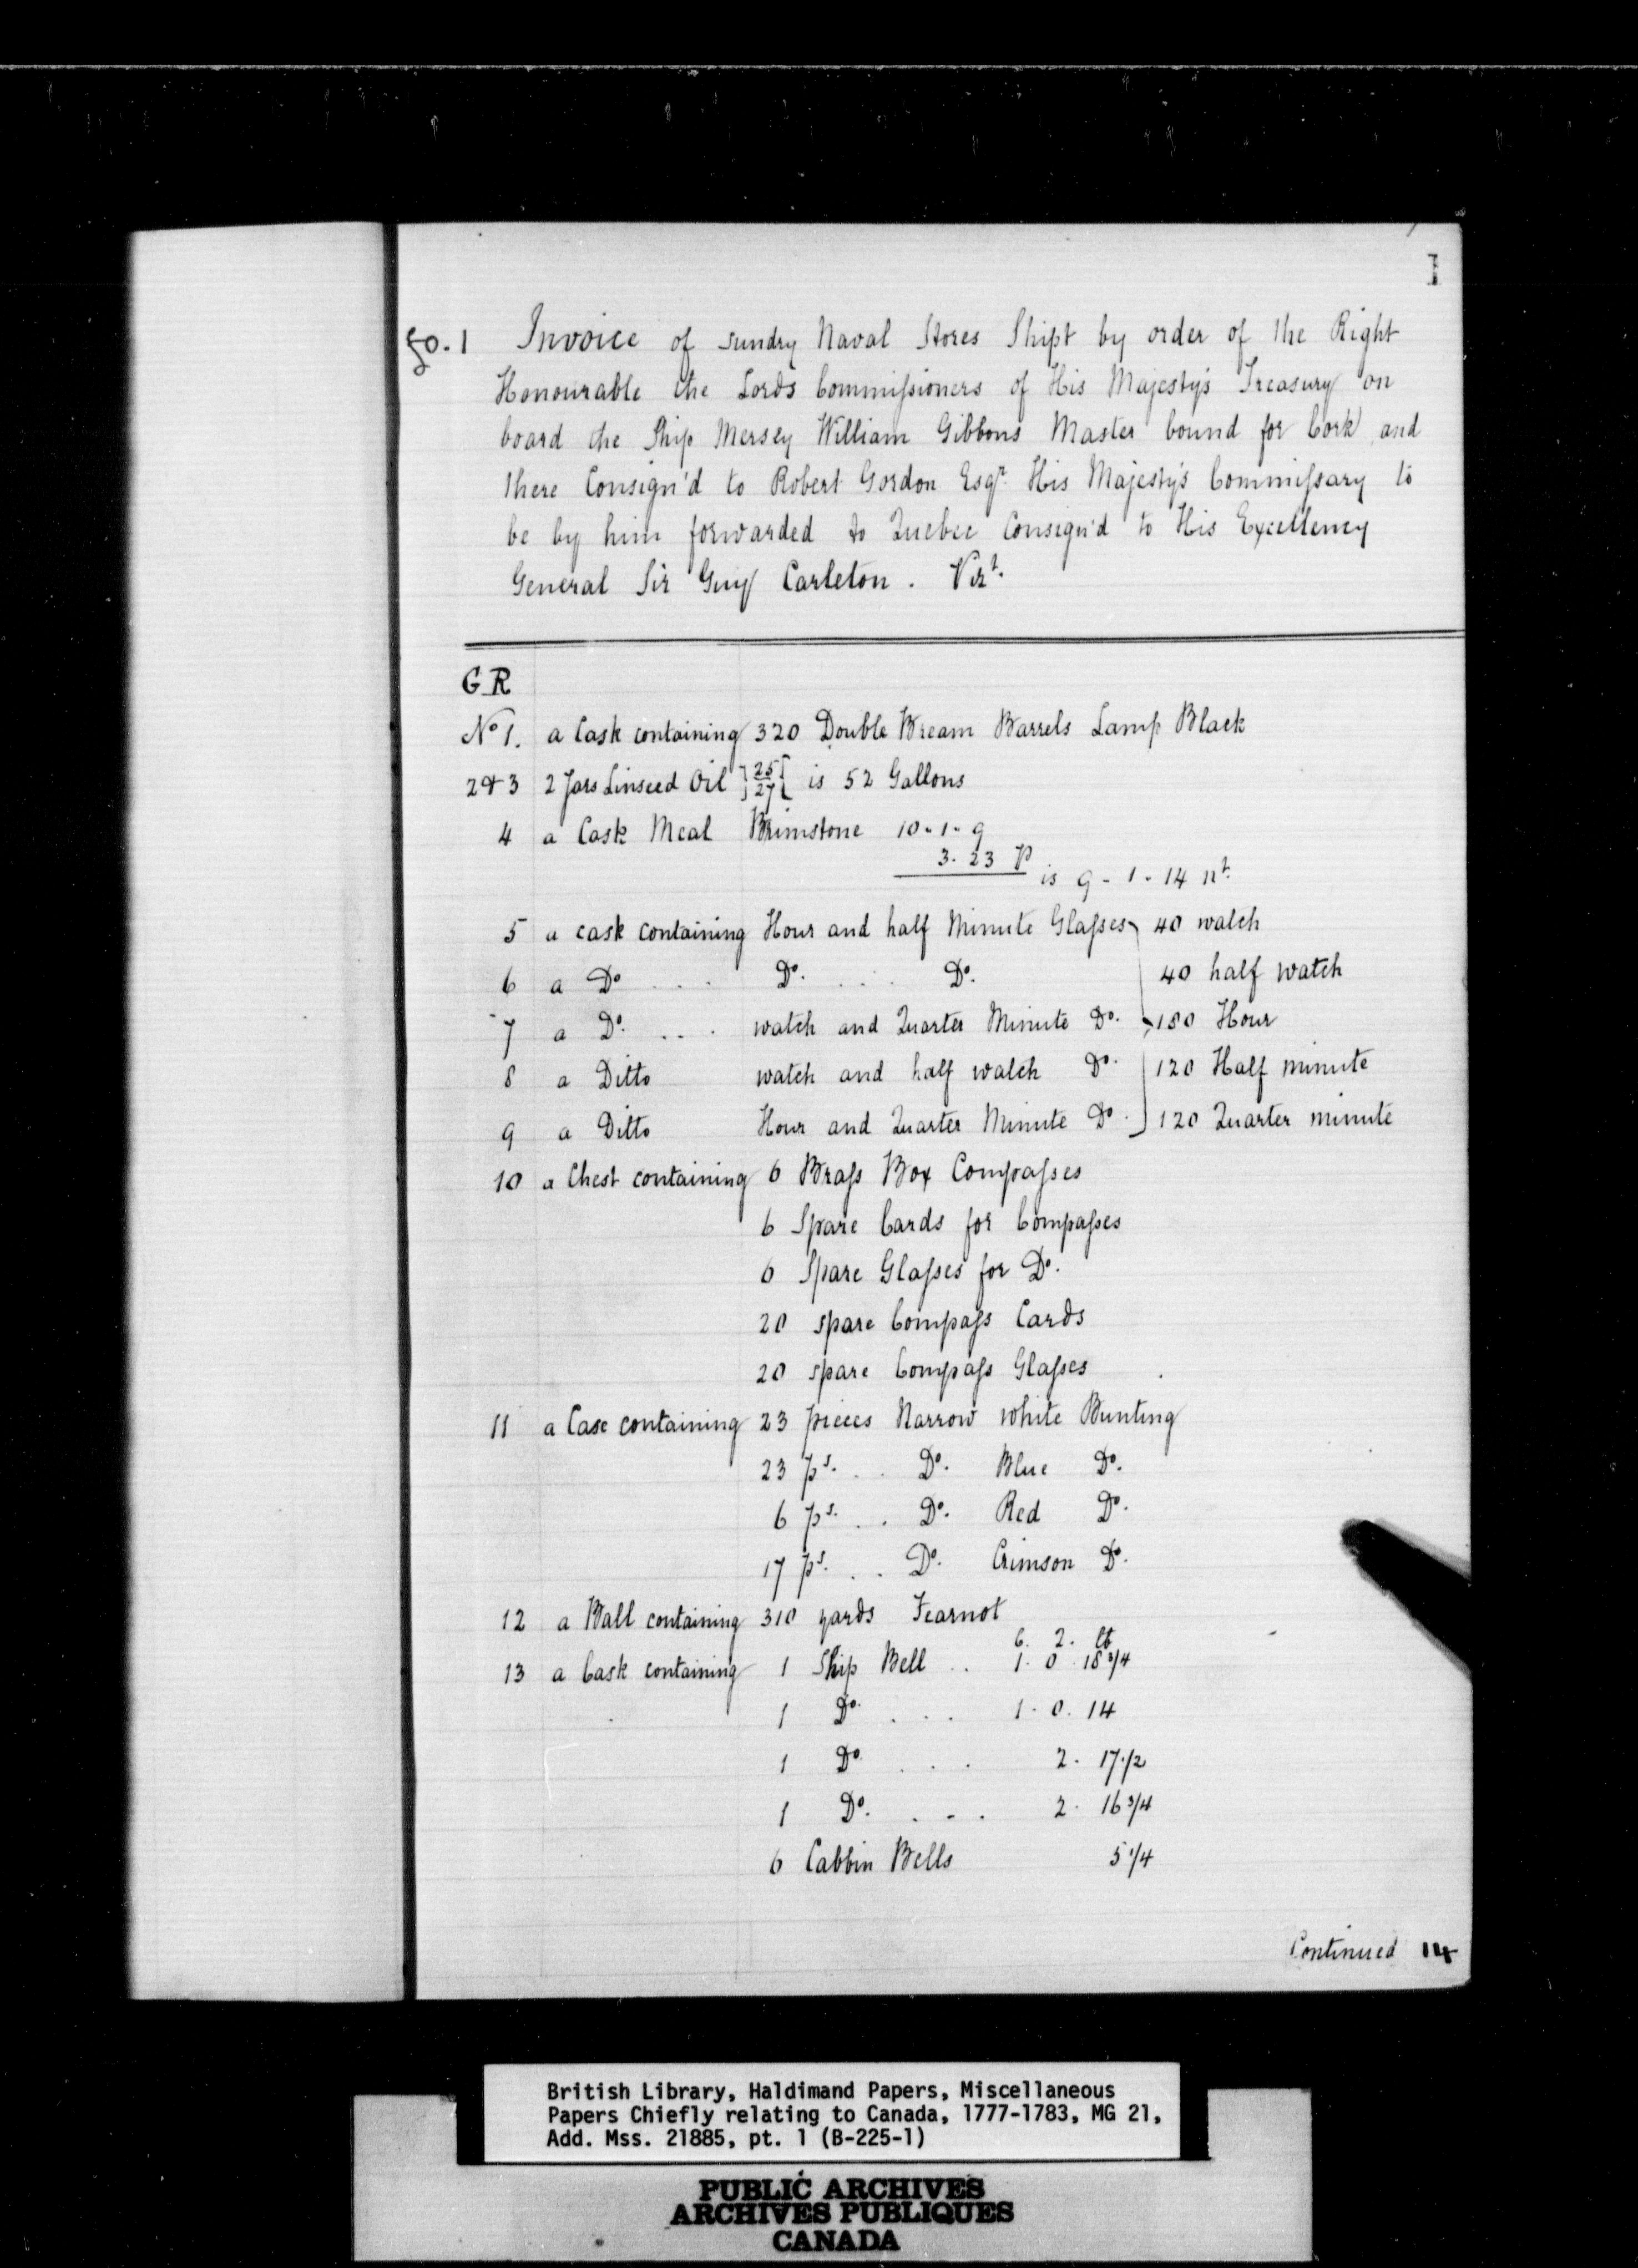 1
fo. 1 Invoice of sundry Naval Stores Shipt by order of the Right
Honourable the Lords Commissioners of His Majesty's Treasury on
board the Ship Mersey William Gibbons Master bound for Cork and
there Consign'd to Robert Gordon Esqr. His Majesty's Commissary to
be by him forwarded to Quebec Consign'd to His Excellency
General Sir Guy Carleton. Vizt.
G R
No 1. a Cask containing 320 Double Bream Barrels Lamp Black
2 & 3 2 Jars Linseed Oil } 25 27 { is 52 Gallons
4 a Cask Meal Brimstone 10 - 1 - 9
3. 23
is 9 - 1 - 14 nt.
5 a cask containing Hour and half Minute Glasses 40 watch
6 a Do . . . Do. . . . Do. 40 half watch
7 a Do. . . . watch and Quarter Minute Do. 180 Hour
8 a Ditto watch and half watch Do. 120 Half minute
9 a Ditto Hour and Quarter Minute Do. 120 Quarter minute
10 a Chest containing 6 Brass Box Compasses
6 Spare Cards for Compasses
6 Spare Glasses for Do.
20 spare Compass Cards
20 spare Compass Glasses
11 a Case containing 23 pieces Narrow white Bunting
23 ps. . . Do. Blue Do.
6 ps. . . Do. Red Do.
17 ps. . . Do. Crimson Do.
12 a Ball containing 310 yards Fearnot
C. 2. lb
13 a Cask containing 1 Ship Bell . . 1. 0. 18 3/4
1 Do. . . . 1. 0. 14
1 Do. . . . 2. 17 1/2
1 Do. . . . 2. 16 3/4
6 Cabbin Bells 5 1/4
Continued 14
British Library, Haldimand Papers, Miscellaneous
Papers Chiefly relating to Canada, 1777-1783, MG 21,
Add. Mss. 21885, pt. 1 (B-225-1)
PUBLIC ARCHIVES
ARCHIVES PUBLIQUES
CANADA